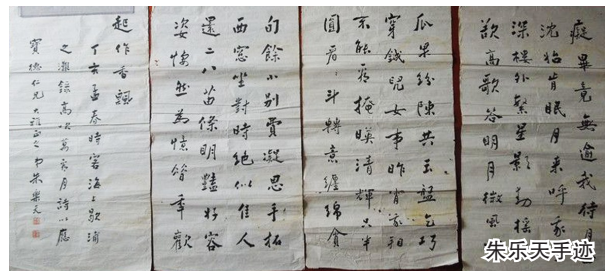 癡畢竟無逾我待月
沈肯眠月來呼
深樓外繁星影動搖
歌高歌答明月微風
瓜果紛陳共玉盤乞巧
穿鍼兒女事昨宵
未能看掩暎清輝只半
圓看斗轉意纏綿貪
旬餘小別費凝思手拓
西窗坐對時絕似佳人
還二八苗條明豔好容
姿悄然為憶昔年歡
起作香飄
丁亥孟春時客海上歇浦
之灘錄高次萬月詩以應
寶德仁兄大雅正之弟朱樂天
朱乐天手迹